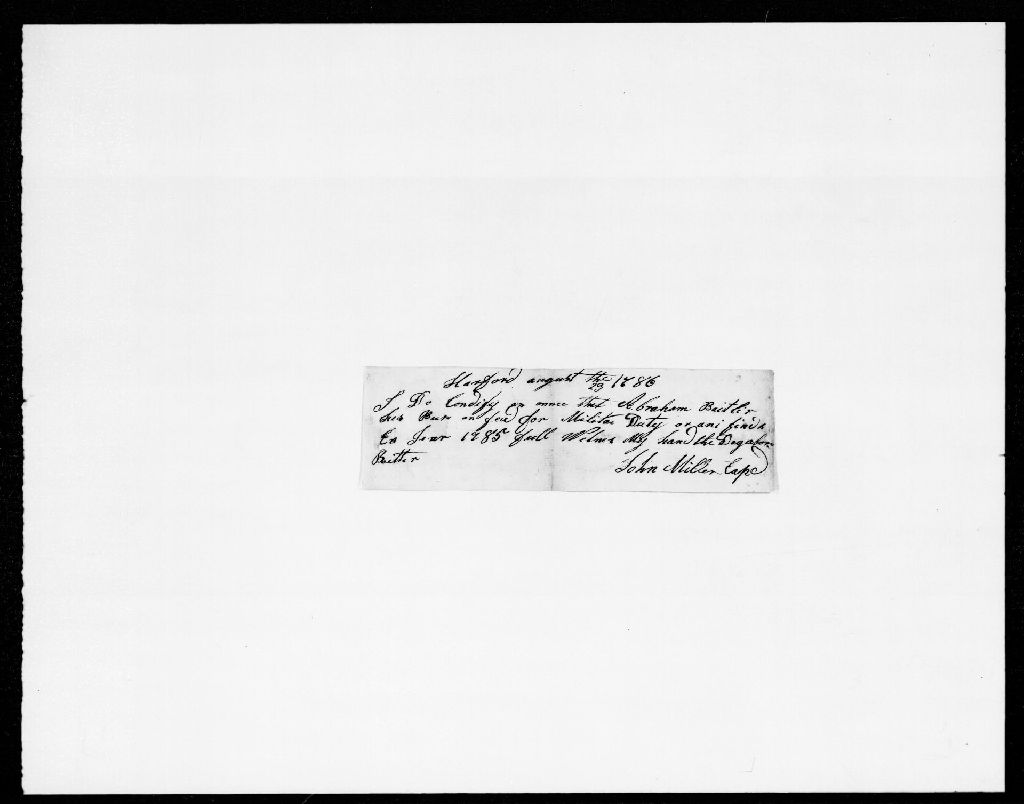 Hanford august the 29 1786
I Do Cendify on mice that Abraham Beitler
his Bun on feid for Militor Duty or ani finds
En Jenr 1785 full Witnes My hand the Deg abov
Britter
John Miller Capt